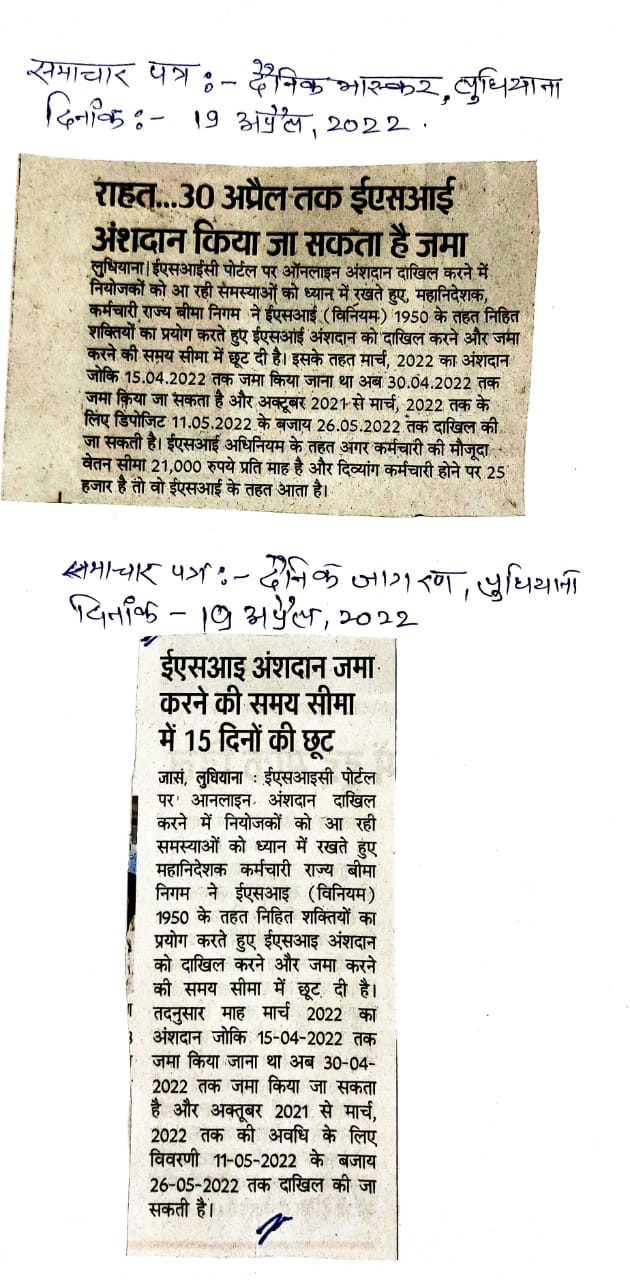 समाचार पत्र :- दैनिक भास्कर, लुधियाना
दिनांक :- 19 अप्रैल, 2022.
राहत...30 अप्रैल तक ईएसआई
अंशदान किया जा सकता है जमा
लुधियाना|ईएसआईसी पोर्टल पर ऑनलाइन अंशदान दाखिल करने में
नियोजकों को आ रही समस्याओं को ध्यान में रखते हुए, महानिदेशक,
कर्मचारी राज्य बीमा निगम ने ईएसआई (विनियम) 1950 के तहत निहित
शक्तियों का प्रयोग करते हुए ईएसआई अंशदान को दाखिल करने और जमा
करने की समय सीमा में छूट दी है। इसके तहत मार्च, 2022 का अंशदान
जोकि 15.04.2022 तक जमा किया जाना था अब 30.04.2022 तक
जमा किया जा सकता है और अक्टूबर 2021 से मार्च, 2022 तक के
लिए डिपोजिट 11.05.2022 के बजाय 26.05.2022 तक दाखिल की
जा सकती है। ईएसआई अधिनियम के तहत अगर कर्मचारी की मौजूदा
वेतन सीमा 21,000 रुपये प्रति माह है और दिव्यांग कर्मचारी होने पर 25
हजार है तो वो ईएसआई के तहत आता है।
समाचार पत्र :- दैनिक जागरण, लुधियाना
दिनांक - 19 अप्रैल, 2022
ईएसआइ अंशदान जमा
करने की समय सीमा
में 15 दिनों की छूट
जासं, लुधियाना : ईएसआइसी पोर्टल
पर आनलाइन अंशदान दाखिल
करने में नियोजकों को आ रही
समस्याओं को ध्यान में रखते हुए
महानिदेशक कर्मचारी राज्य बीमा
निगम ने ईएसआइ (विनियम)
1950 के तहत निहित शक्तियों का
प्रयोग करते हुए ईएसआइ अंशदान
को दाखिल करने और जमा करने
की समय सीमा में छूट दी है।
तदनुसार माह मार्च 2022 का
अंशदान जोकि 15-04-2022 तक
जमा किया जाना था अब 30-04-
2022 तक जमा किया जा सकता
है और अक्तूबर 2021 से मार्च,
2022 तक की अवधि के लिए
विवरणी 11-05-2022 के बजाय
26-05-2022 तक दाखिल की जा
सकती है।